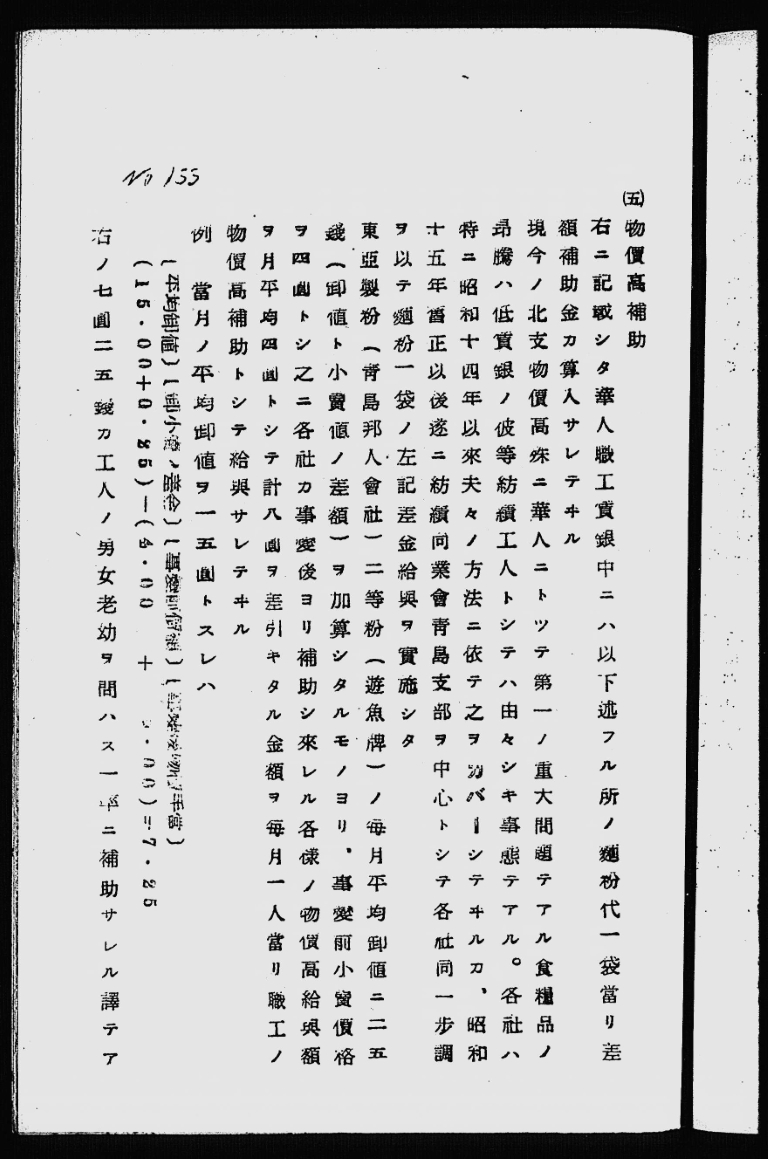 No 153
㈤物價高補助
右ニ記載シタ華人職工賃銀中ニハ以下述フル所ノ麵粉代一袋當リ差
額補助金カ算入サレテヰル
現今ノ北支物價高殊ニ華人ニトツテ第一ノ重大問題テアル食糧品ノ
昂騰ハ低賃銀ノ彼等紡績工人トシテハ由々シキ事態テアル。各社ハ
特ニ昭和十四年以來夫々ノ方法ニ依テ之ヲカバーシテヰルカ、昭和
十五年舊正以後遂ニ紡績同業會靑島支部ヲ中心トシテ各社同一步調
ヲ以テ麵粉一袋ノ左記差金給與ヲ實施シタ
東亞製粉(靑島邦人會社)二等粉(遊魚牌)ノ每月平均卸値ニ二五
錢(卸値ト小賣値ノ差額)ヲ加算シタルモノヨリ、事變前小賣價格
ヲ四圓トシ之ニ各社カ事變後ヨリ補助シ來レル各樣ノ物價高給與額
ヲ月平均四圓トシテ計八圓ヲ差引キタル金額ヲ每月一人當リ職工ノ
物價高補助トシテ給與サレテヰル
例 當月ノ平均卸値ヲ一五圓トスレハ
(平均卸値)(卸小賣ノ差金)(事變前個額)(事變後物價手當)
(15・00+0・25)—(4・00 + ・00)=7・25
右ノ七圓二五錢カ工人ノ男女老幼ヲ問ハス一率ニ補助サレル譯テア